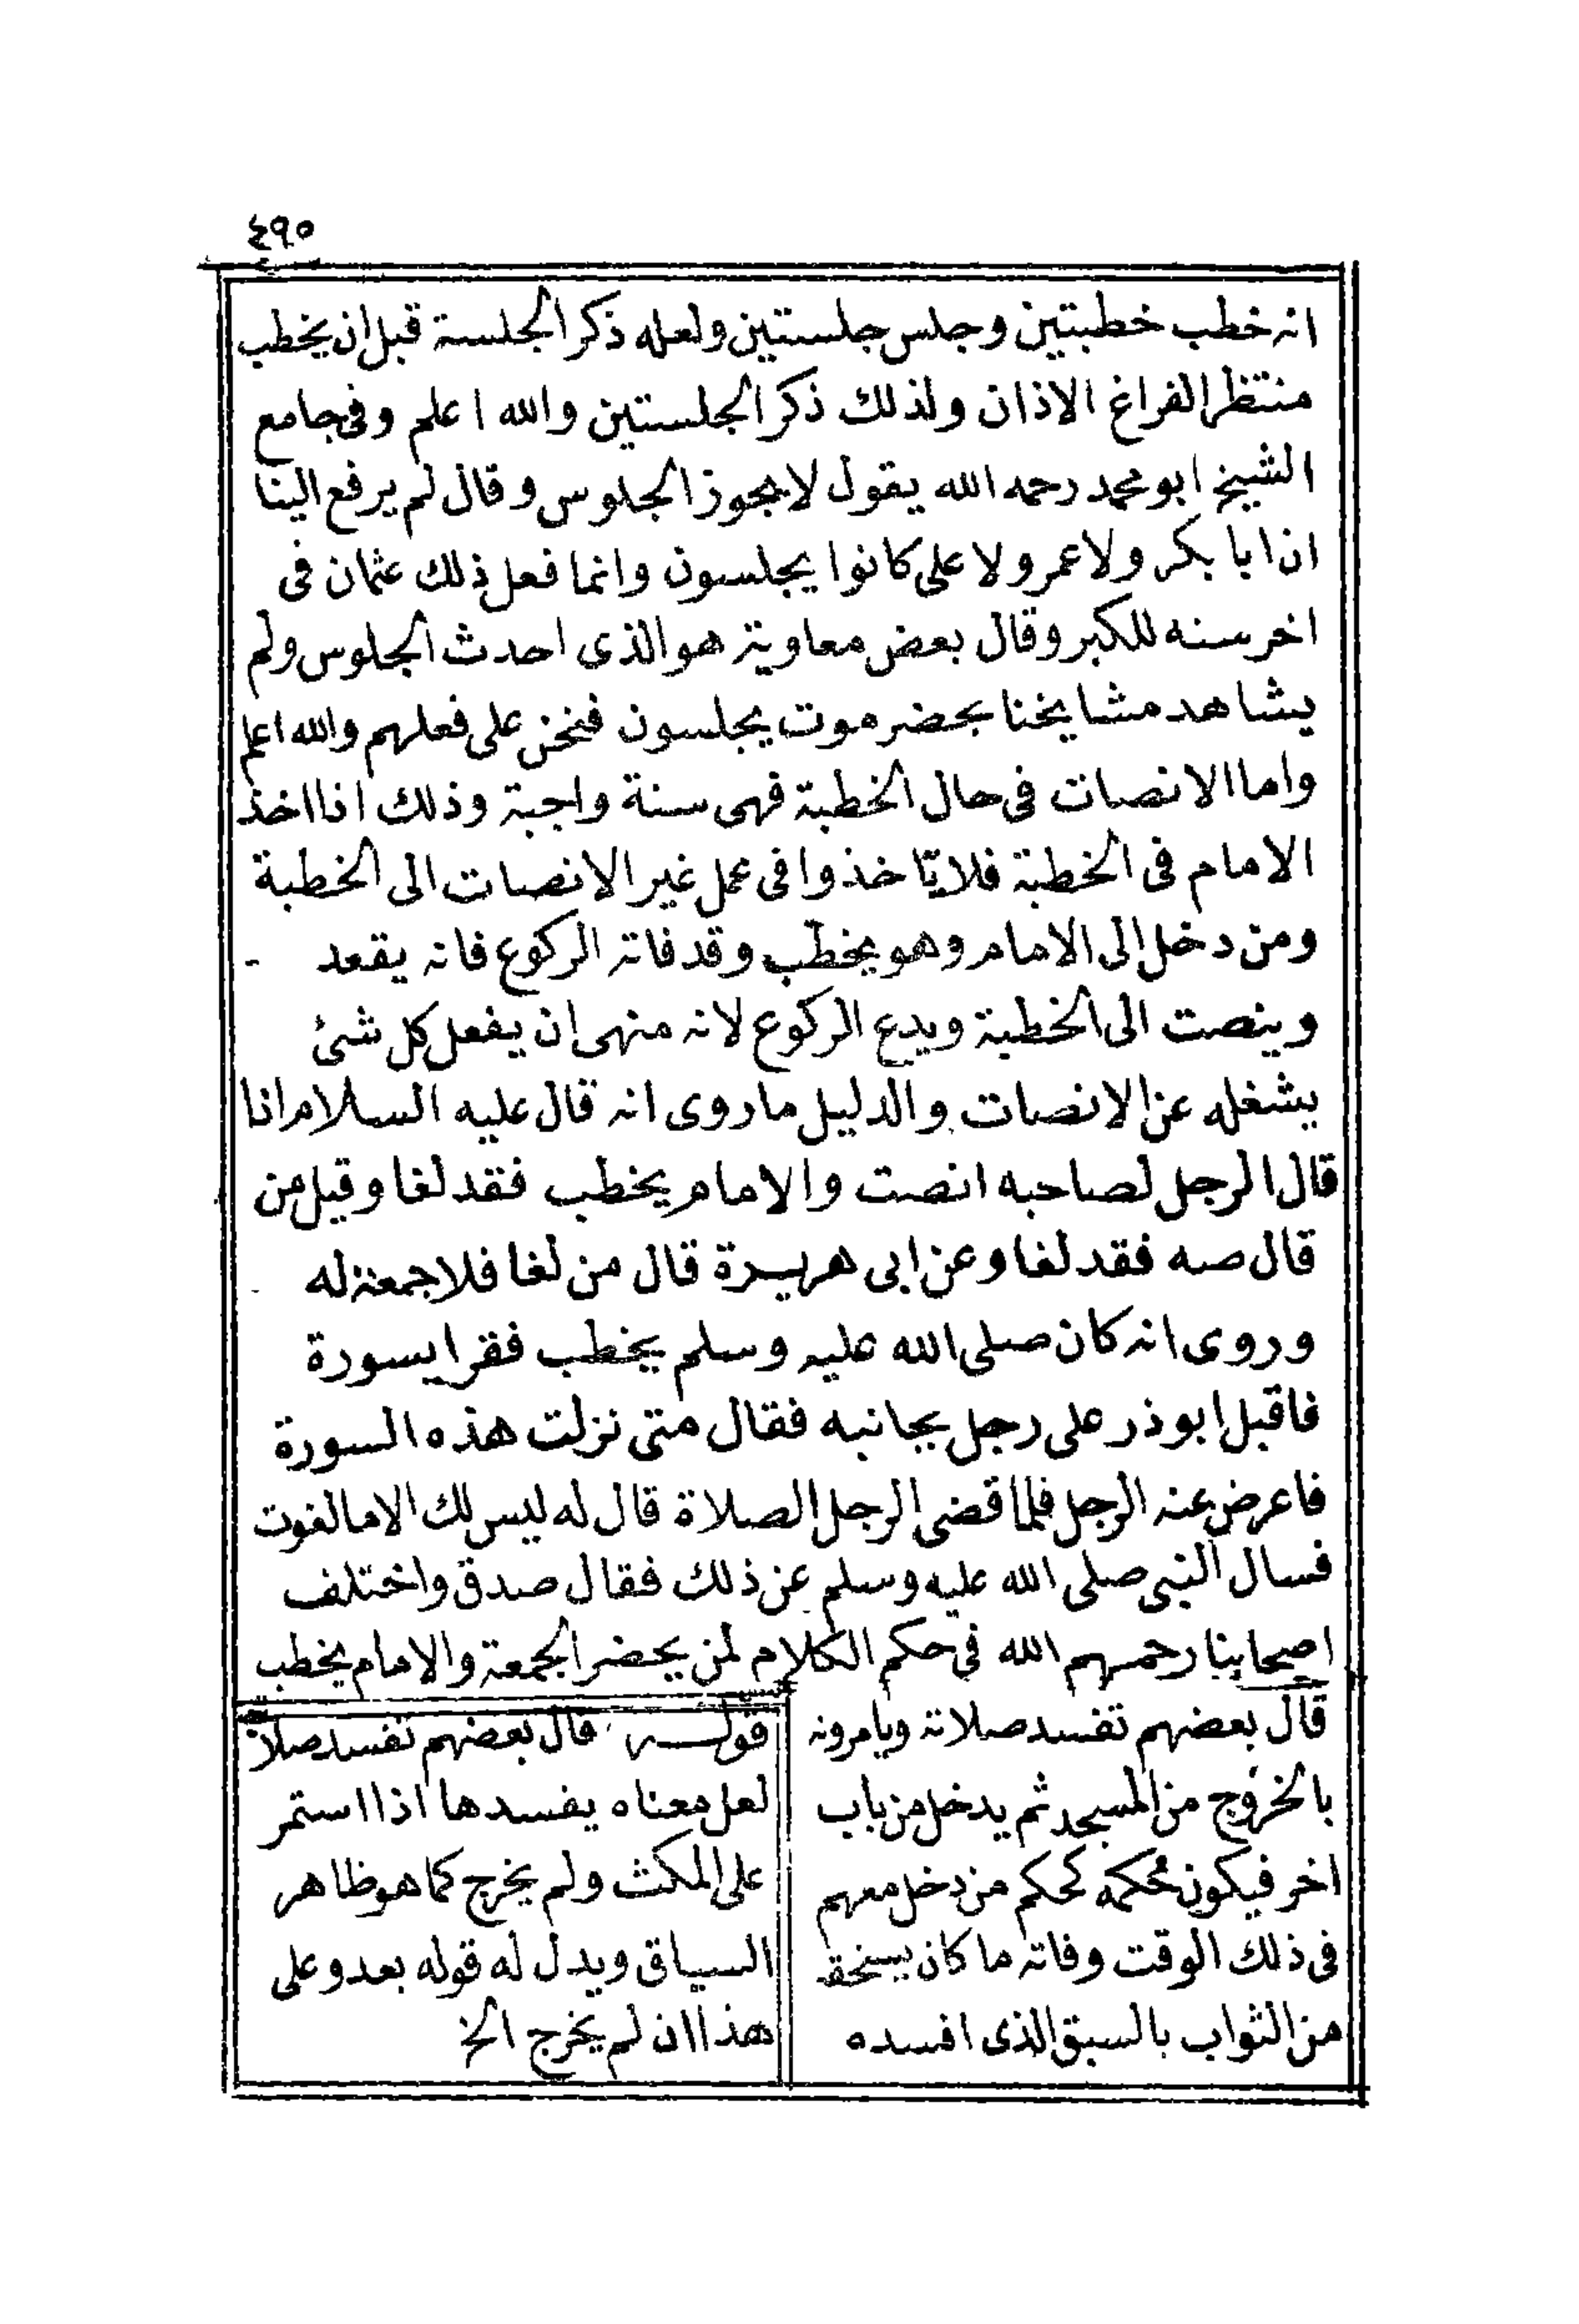 ٤٩٥
انه خطب خطبتين وجلس جلستين ولعله ذكر الجلسة قبل ان يخطب
منتظر الفراغ الاذان ولذلك ذكر الجلستين والله اعلم وفى جامع
الشيخ ابو محمد رحمه الله يقول لا يجوز الجلوس وقال لم يرفع الينا
ان ابا بكر ولا عمر ولا على كانوا يجلسون وانما فعل ذلك عثمان فى
اخر سنه للكبر وقال بعض معاوية هو الذى احدث الجلوس ولم
يشاهد مشايخنا بحضرموت يجلسون فنحن على فعلهم والله اعلم
واما الانصات فى حال الخطبة فهى سنة واجبة وذلك اذا اخذ
الامام فى الخطبة فلا يتاخذوا فى عمل غير الانصات الى الخطبة
ومن دخل الى الامام وهو يخطب وقد فاته الركوع فانه يقعد
وينصت الى الخطبة ويدع الركوع لانه منهى ان يفعل كل شئ
يشغله عن الانصات والدليل ما روى انه قال عليه السلام اذا
قال الرجل لصاحبه انصت والامام يخطب فقد لغا وقيل من
قال صه فقد لغا وعن ابى هريرة قال من لغا فلا جمعة له
وروى انه كان صلى الله عليه وسلم يخطب فقرا بسورة
فاقبل ابو ذر على رجل بجانبه فقال متى نزلت هذه السورة
فاعرض عنه الرجل فلما قضى الرجل الصلاة قال له ليس لك الا ما لغوت
فسال النبى صلى الله عليه وسلم عن ذلك فقال صدق واختلف
اصحابنا رحمهم الله فى حكم الكلام لمن يحضر الجمعة والامام يخطب
قال بعضهم تفسد صلاته ويامرونه
بالخروج من المسجد ثم يدخل من باب
اخر فيكون حكمه كحكم من دخل معهم
فى ذلك الوقت وفاته ما كان يستحق
من الثواب بالسبق الذى افسده
قوله قال بعضهم تفسد صلاته
لعل معناه يفسدها اذا استمر
على المكث ولم يخرج كما هو ظاهر
السياق ويدل له قوله بعد وعلى
هذا ان لم يخرج الخ